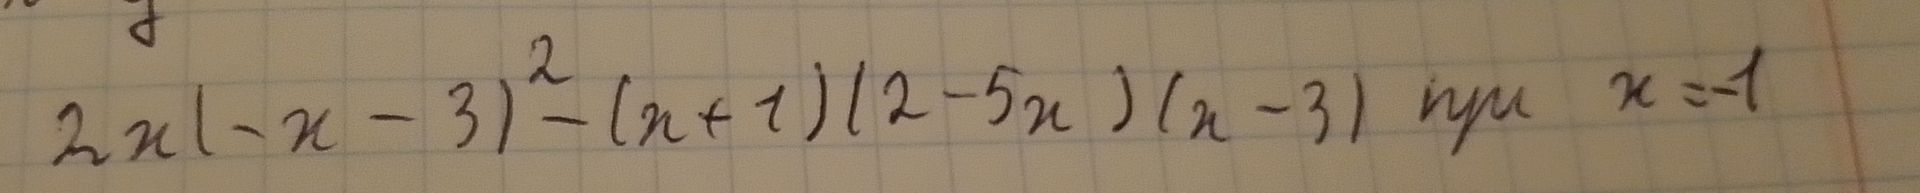 2x(-x-3)²-(x+1)(2-5x)(x-3) при x=-1